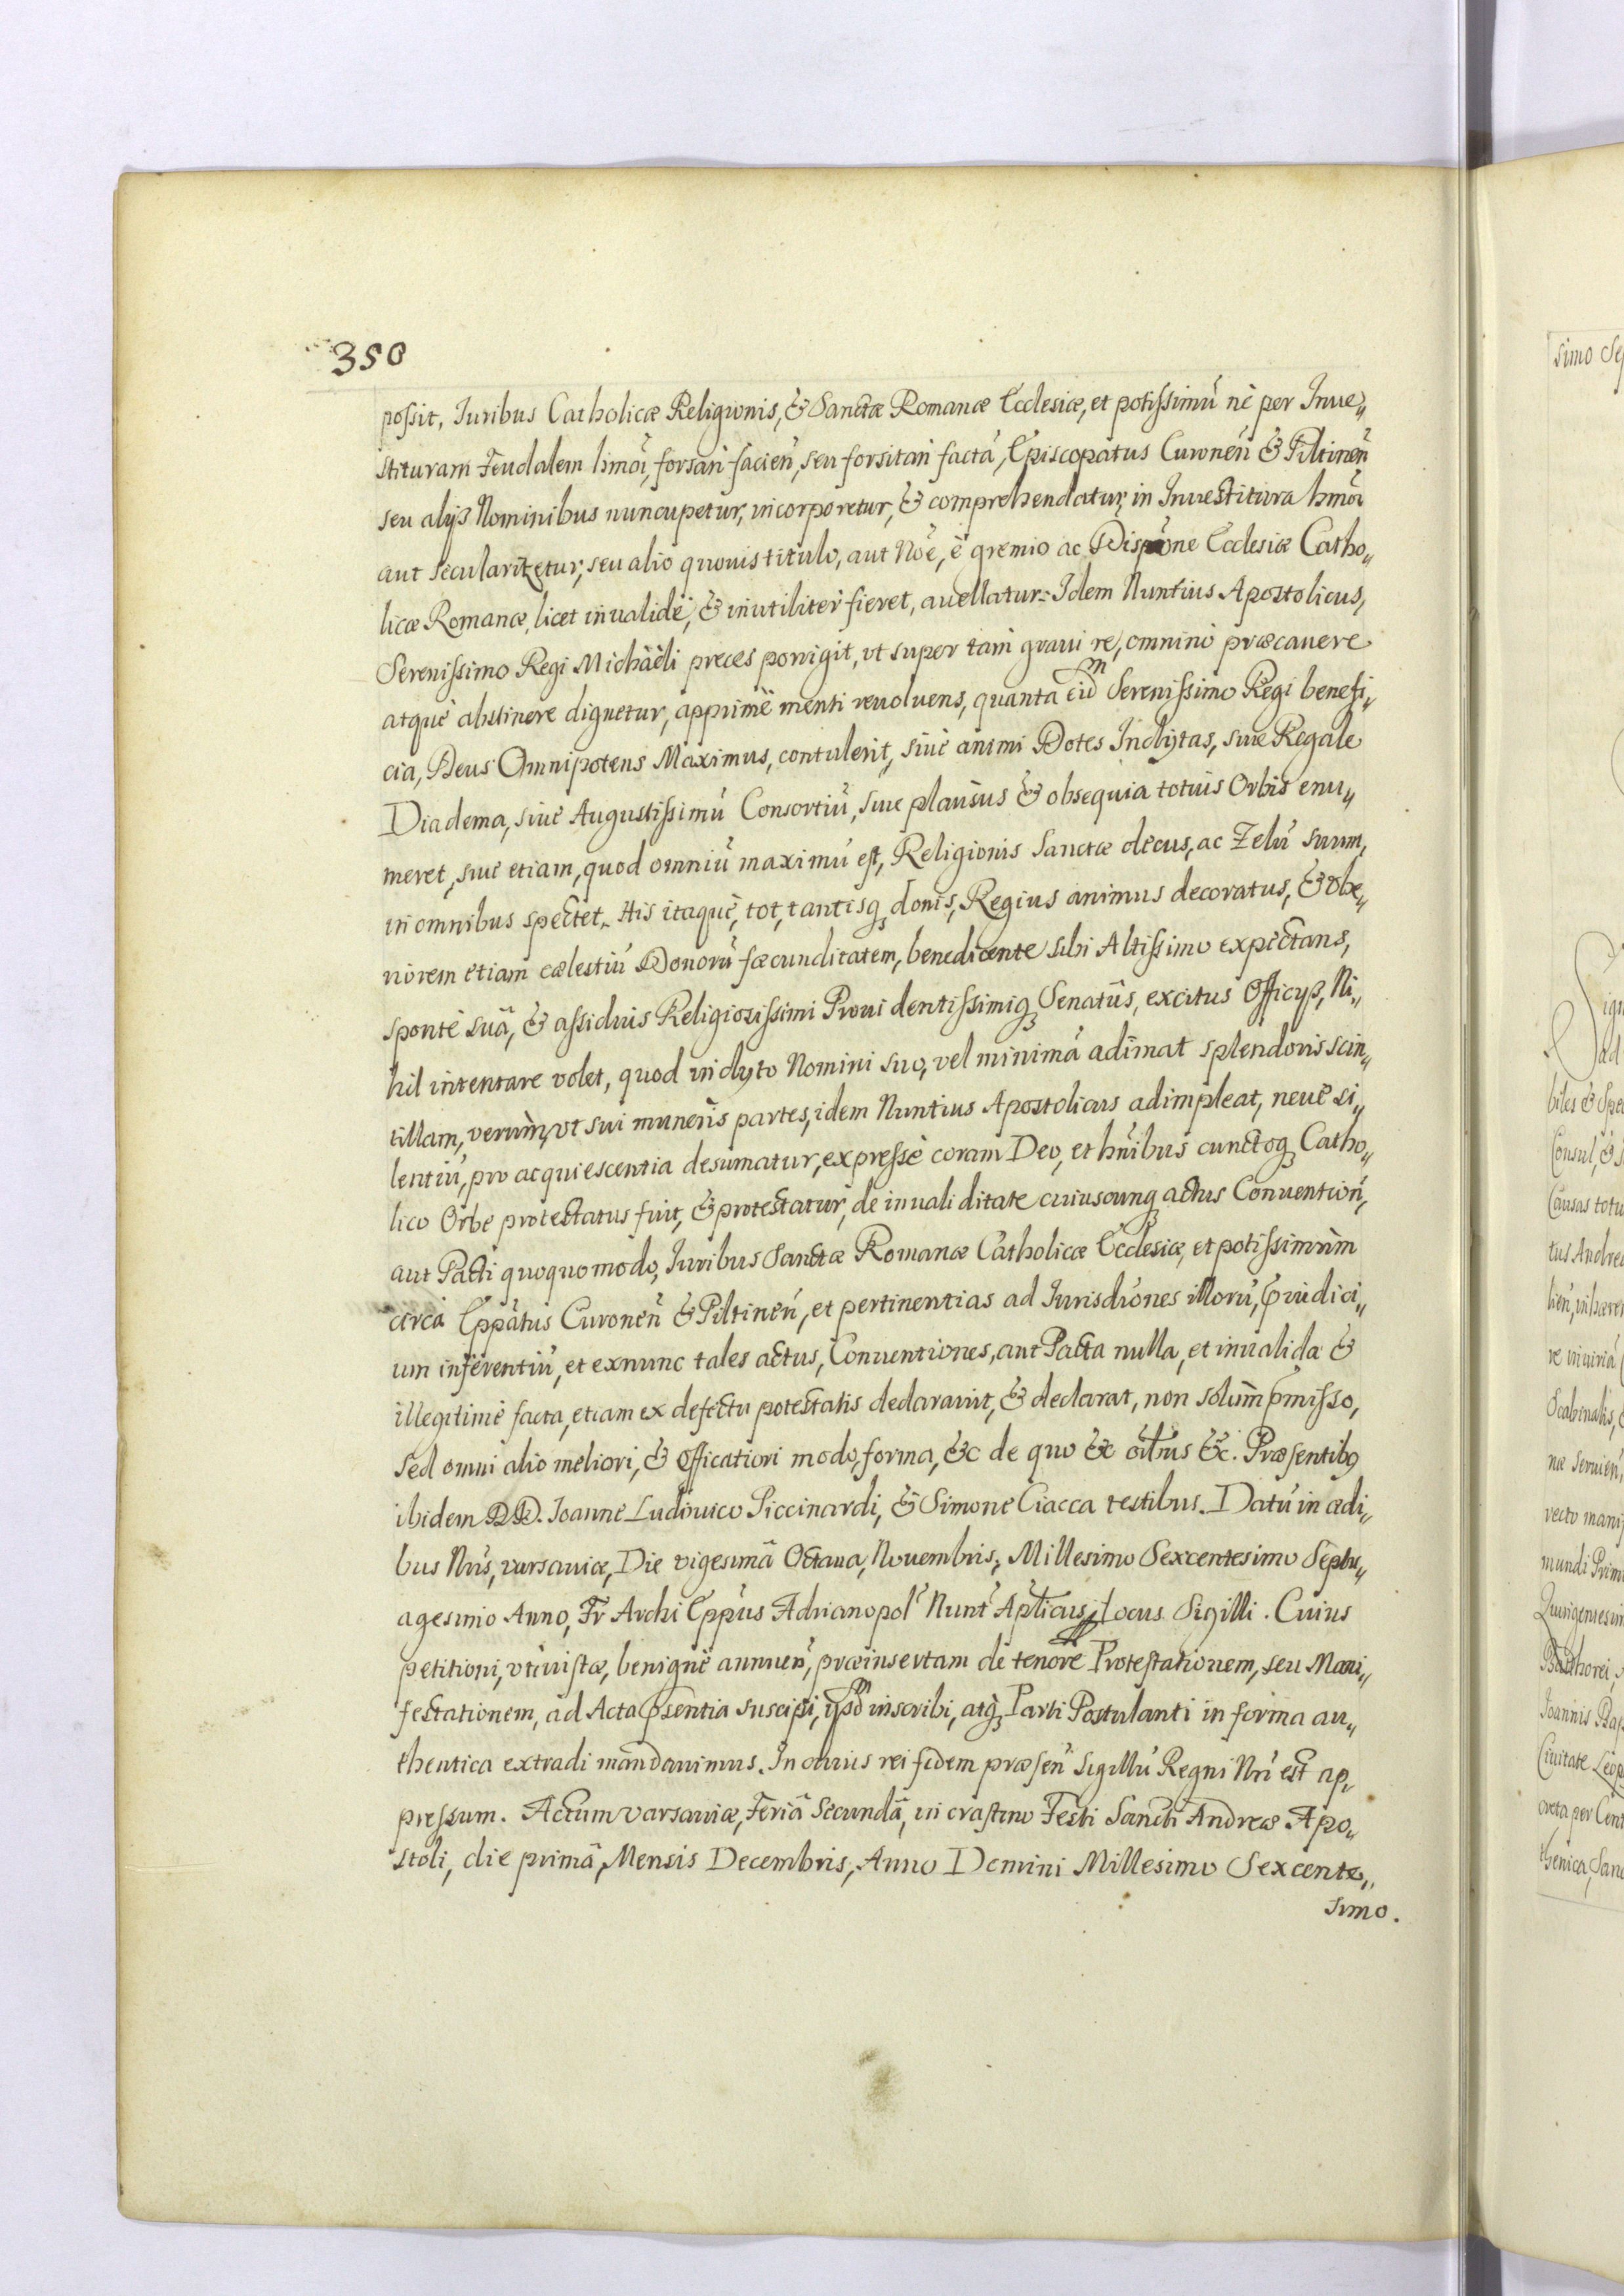 350
possit, Iuribus Catholicæ Religionis, & Sanctæ Romanæ Ecclesiæ, et potissimũ nè per Inue„
stituram Feudalem hmõi, forsan facień, seu forsitan factã, Episcopatus Curoneñ & Piltineñ
seu alijs Nominibus nuncupetur, incorporetur, & comprehendatur, in Inuestitura hmõi
aut secularizetur, seu alio quouis titulo, aut Nõe, è gremio ac Dispõne Ecclesiæ Catho„
licæ Romanæ, licet inualidè, & inutiliter fieret, auellatur: Idem Nuntius Apostolicus,
Serenissimo Regi Michaëli preces porrigit, vt super tam graui re, omninò præcauere
atquè abstinere dignetur, apprimè menti reuoluens, quanta eidm Serenissimo Regi benefi„
cia, Deus Omnipotens Maximus, contulerit, siuè animi Dotes Inclytas, siue Regale
Diadema, siuè Augustissimũ Consortiũ, siue plausus & obsequia totius Orbis enu„
meret, siuè etiam, quod omniũ maximũ est, Religionis Sanctæ decus, ac Zelũ suum,
in omnibus spectet. His itaquè, tot, tantisq3 donis, Regius animus decoratus, & vbe„
riorem etiam cælestiũ Donorũ fæcunditatem, benedicente sibi Altissimo expectans,
spontè suâ, & assiduis Religiosissimi Prouidentissimiq3 Senatûs, excitus Officijs, Ni„
hil intentare volet, quod inclyto Nomini suo, vel minimã adimat splendoris scin„
tillam, verùm, vt sui muneris partes, idem Nuntius Apostolicus adimpleat, neuè si„
lentiũ, pro acquiescentia desumatur, expressè coram Deo, et hńibus cunctoq3 Catho„
lico Orbe protestatus fuit, & protestatur, de inualiditate cuiuscunq3 actus Conuentioñ,
aut Pacti quoquomodo, Iuribus Sanctæ Romanæ Catholicæ Ecclesiæ, et potissimùm
circà Eppãtus Curoneñ & Piltineń, et pertinentias ad Iurisdiones illorũ, pĩudici„
um inferentiũ, et exnunc tales actus, Conuentiones, aut Pacta nulla, et inualida &
illegitimè facta, etiam ex defectu potestatis declarauit, & declarat, non solùm pmisso,
sed omni alio meliori, & efficatiori modo, forma, &c de quo &c oĩbus &c. Præsentibq
ibidem DD. Ioanne Ludouico Piccinardi, & Simone Ciacca testibus. Datũ in ædi„
bus Nris, varsauiæ, Die vigesimâ Octaua, Nouembris, Millesimo Sexcentesimo Septu„
agesimo Anno, Fr Archi Eppus Adrianopol' Nunt' Aplicus, Locus Sigilli. Cuius
petitioni, vti iustæ, benignè annueñ, præinsertam de tenore Protestationem, seu Mani„
festationem, ad Acta psentia suscipi, ijsdm inscribi, atq3 Parti Postulanti in forma au„
thentica extradi mandauimus. In cuius rei fidem præseñ sigillũ Regni Nri est ap„
pressum. Actum varsauiæ, Feriâ Secundâ, in crastino Festi Sancti Andreæ Apo„
stoli, die primâ, Mensis Decembris, Anno Domini Millesimo Sexcente„
simo.